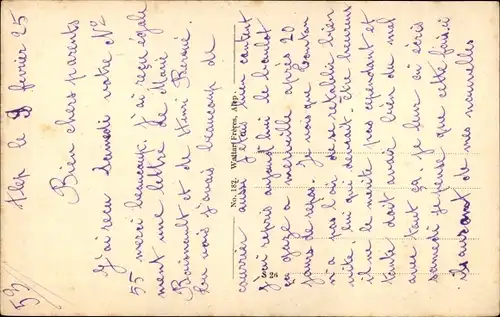 Alep le 9 fevrier 25
53)
Bien chers parents
J'ai reçu Samedi votre N°
55 merci beaucoup, j'ai reçu égale
ment une lettre de Marie
Boisnault et de Henri
vous vois j'avais beaucoup de
No. 182. Wattar Frères, Alep.
courrier aussi j'étais bien content
J'ai repris aujourd'hui le boulot
ça gaze a merveille après 20
jours de repos. Je vois que tonton
n'a pas l'air de se retablir bien
vite, lui qui devait être heureux
il ne le merite pas cependant et
tante doit avoir bien du mal
avec tout ça. je leur ai écris
samedi je pense que cette fois ci
ils auront de mes nouvelles